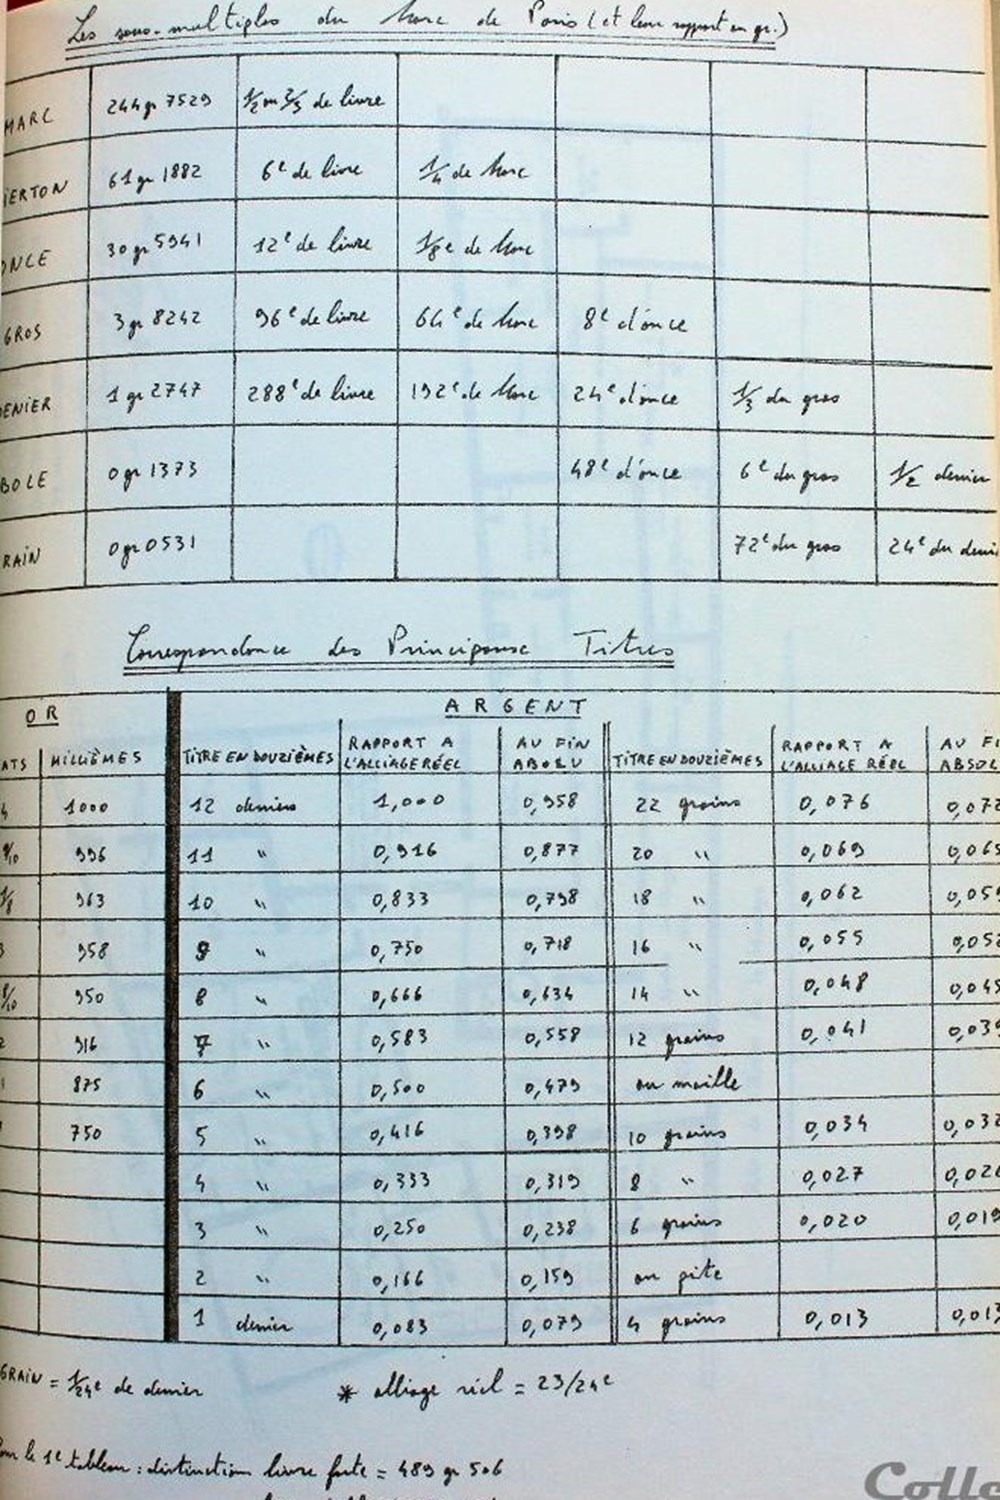 Les sous-multiples du Marc de Paris (et leur rapport en gr.)
MARC 244 gr 7529 1/2 ou 2/3 de livre
IERTON 61 gr 1882 6e de livre 1/4 de Marc
ONCE 30 gr 5941 12e de livre 1/8e de Marc
GROS 3 gr 8242 96e de livre 64e de Marc 8e d'once
ENIER 1 gr 2747 288e de livre 192e de Marc 24e d'once 1/3 du gros
BOLE 0 gr 1373 48e d'once 6e du gros 1/2 denier
RAIN 0 gr 0531 72e du gros 24e du deni
Correspondance des Principaux Titres
OR ARGENT
ATS MILLIÈMES TITRE EN DOUZIÈMES RAPPORT A L'ALLIAGE RÉEL AU FIN ABOLU TITRE EN DOUZIÈMES RAPPORT A L'ALLIAGE RÉEL AU FI ABSOL
4 1000 12 deniers 1,000 0,958 22 grains 0,076 0,072
9/10 996 11 " 0,916 0,877 20 " 0,069 0,065
1/8 963 10 " 0,833 0,798 18 " 0,062 0,059
3 958 9 " 0,750 0,718 16 " 0,055 0,052
8/10 950 8 " 0,666 0,634 14 " 0,048 0,045
2 916 7 " 0,583 0,558 12 grains 0,041 0,039
1 875 6 " 0,500 0,479 ou maille
750 5 " 0,416 0,398 10 grains 0,034 0,032
4 " 0,333 0,319 8 " 0,027 0,026
3 " 0,250 0,238 6 grains 0,020 0,019
2 " 0,166 0,159 ou pite
1 denier 0,083 0,079 4 grains 0,013 0,013
GRAIN = 1/24e de denier * alliage réel = 23/24e
Pour le 1e tableau : distinction livre forte = 489 gr 506
Colle